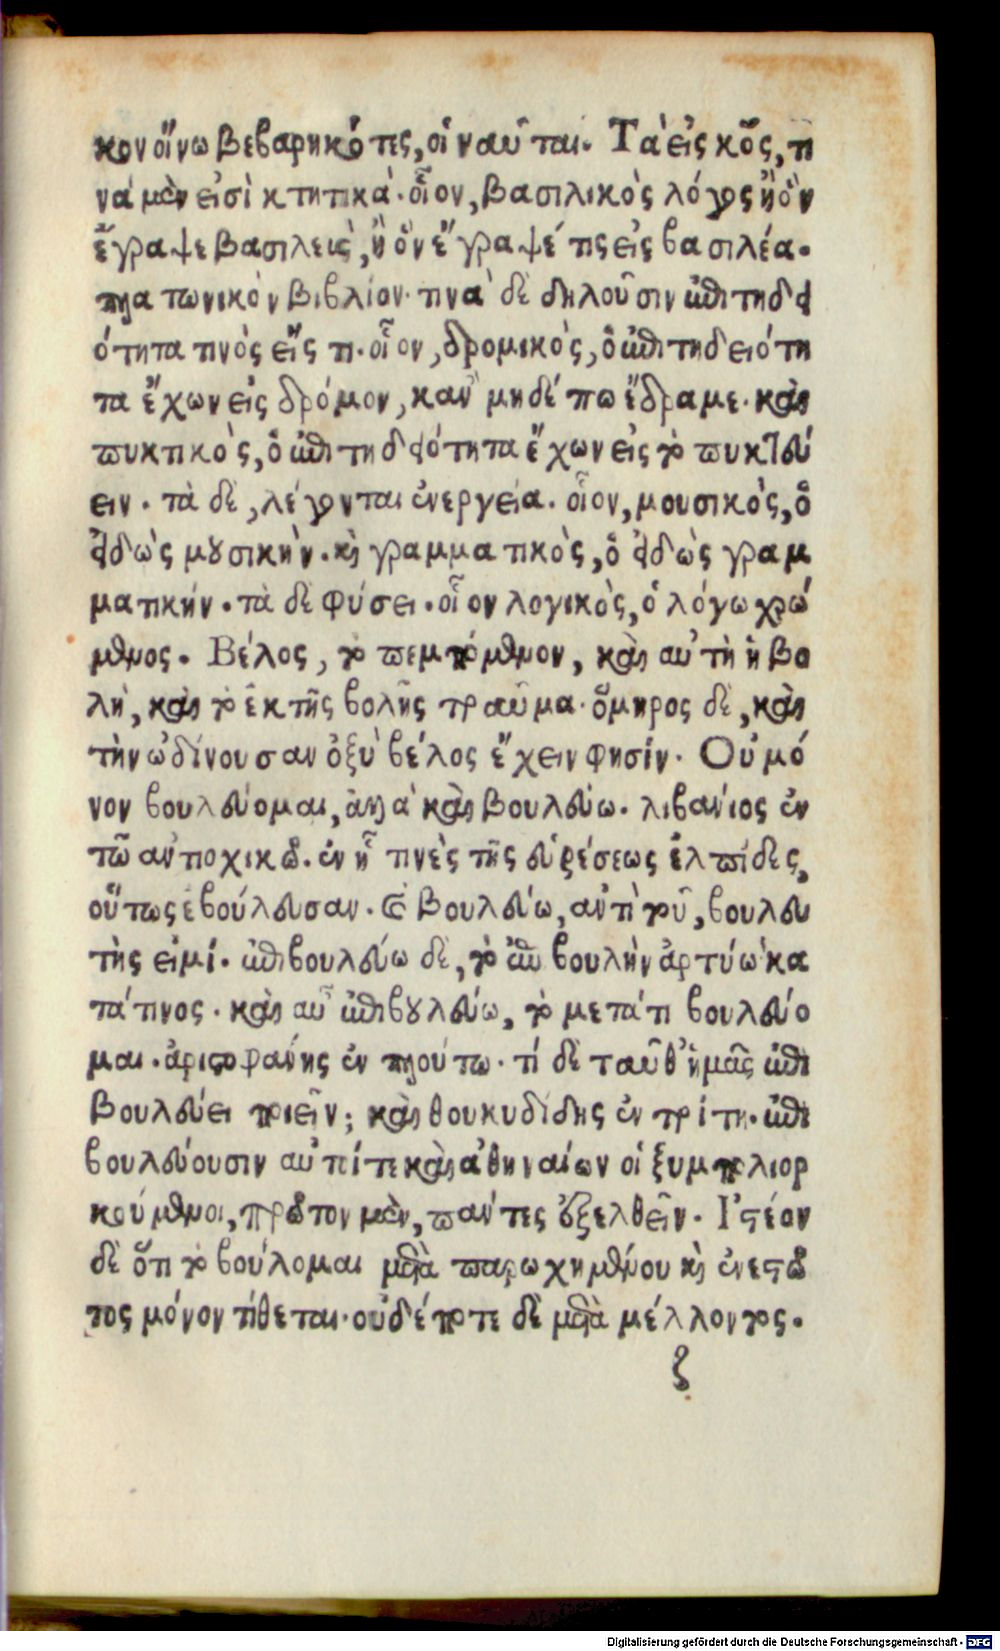 κον οἴνῳ βεβαρηκότες, οἱ ναῦται. Τὰ εἰς κὸς, τι
νὰ μὲν εἰσὶ κτητικά. οἷον, βασιλικὸς λόγος ἢ ὃν
ἔγραψε βασιλεὺς, ἢ ὃν ἔγραψέ τις εἰς βασιλέα.
πλατωνικὸν βιβλίον. τινὰ δὲ δηλοῦσιν ἐπιτηδει
ότητα τινὸς εἴς τι. οἷον, δρομικὸς, ὁ ἐπιτηδειότη
τα ἔχων εἰς δρόμον, κἂν μηδέπω ἔδραμε. καὶ
πυκτικὸς, ὁ ἐπιτηδειότητα ἔχων εἰς τὸ πυκτεύ
ειν. τὰ δὲ, λέγονται ἐνεργείᾳ. οἷον, μουσικὸς, ὁ
εἰδὼς μουσικήν. καὶ γραμματικὸς, ὁ εἰδὼς γραμ
ματικήν. τὰ δὲ φύσει. οἷον λογικὸς, ὁ λόγω χρώ
μενος. Βέλος, τὸ πεμπόμενον, καὶ αὐτὴ ἡ βο
λὴ, καὶ τὸ ἐκ τῆς βολῆς τραῦμα. ὅμηρος δὲ, καὶ
τὴν ὠδίνουσαν ὀξὺ βέλος ἔχειν φησίν. Οὐ μό
νον βουλεύομαι, ἀλλὰ καὶ βουλεύω. λιβανίος ἐν
τῶ ἀντιοχικῶ. ἐν ᾗ τινὲς τῆς εὑρέσεως ἐλπίδες,
οὕτως ἐβούλευσαν. Ὃ βουλεύω, ἀντὶ τοῦ, βουλευ
τὴς εἰμί. ἐπιβουλεύω δὲ, τὸ ἐπὶ βουλὴν ἀρτύω κα
τά τινος. καὶ αὖ ἐπιβουλεύω, τὸ μετά τι βουλεύο
μαι. ἀριστοφάνης ἐν πλούτω. τί δὲ ταῦθ’ ἡμᾶς ἐπι
βουλεύει ποιεῖν; καὶ θουκυδίδης ἐν τρίτη. ἐπι
βουλεύουσιν αὐτοί τε καὶ ἀθηναίων οἱ ξυμπολιορ
κούμενοι, πρῶτον μὲν, πάντες ἐξελθεῖν. Ἰστέον
δὲ ὅτι τὸ βούλομαι μετὰ παρωχημένου καὶ ἐνεστῶ
τος μόνον τίθεται. οὐδέποτε δὲ μετὰ μέλλοντος.
ζ
Digitalisierung gefördert durch die Deutsche Forschungsgemeinschaft - DFG